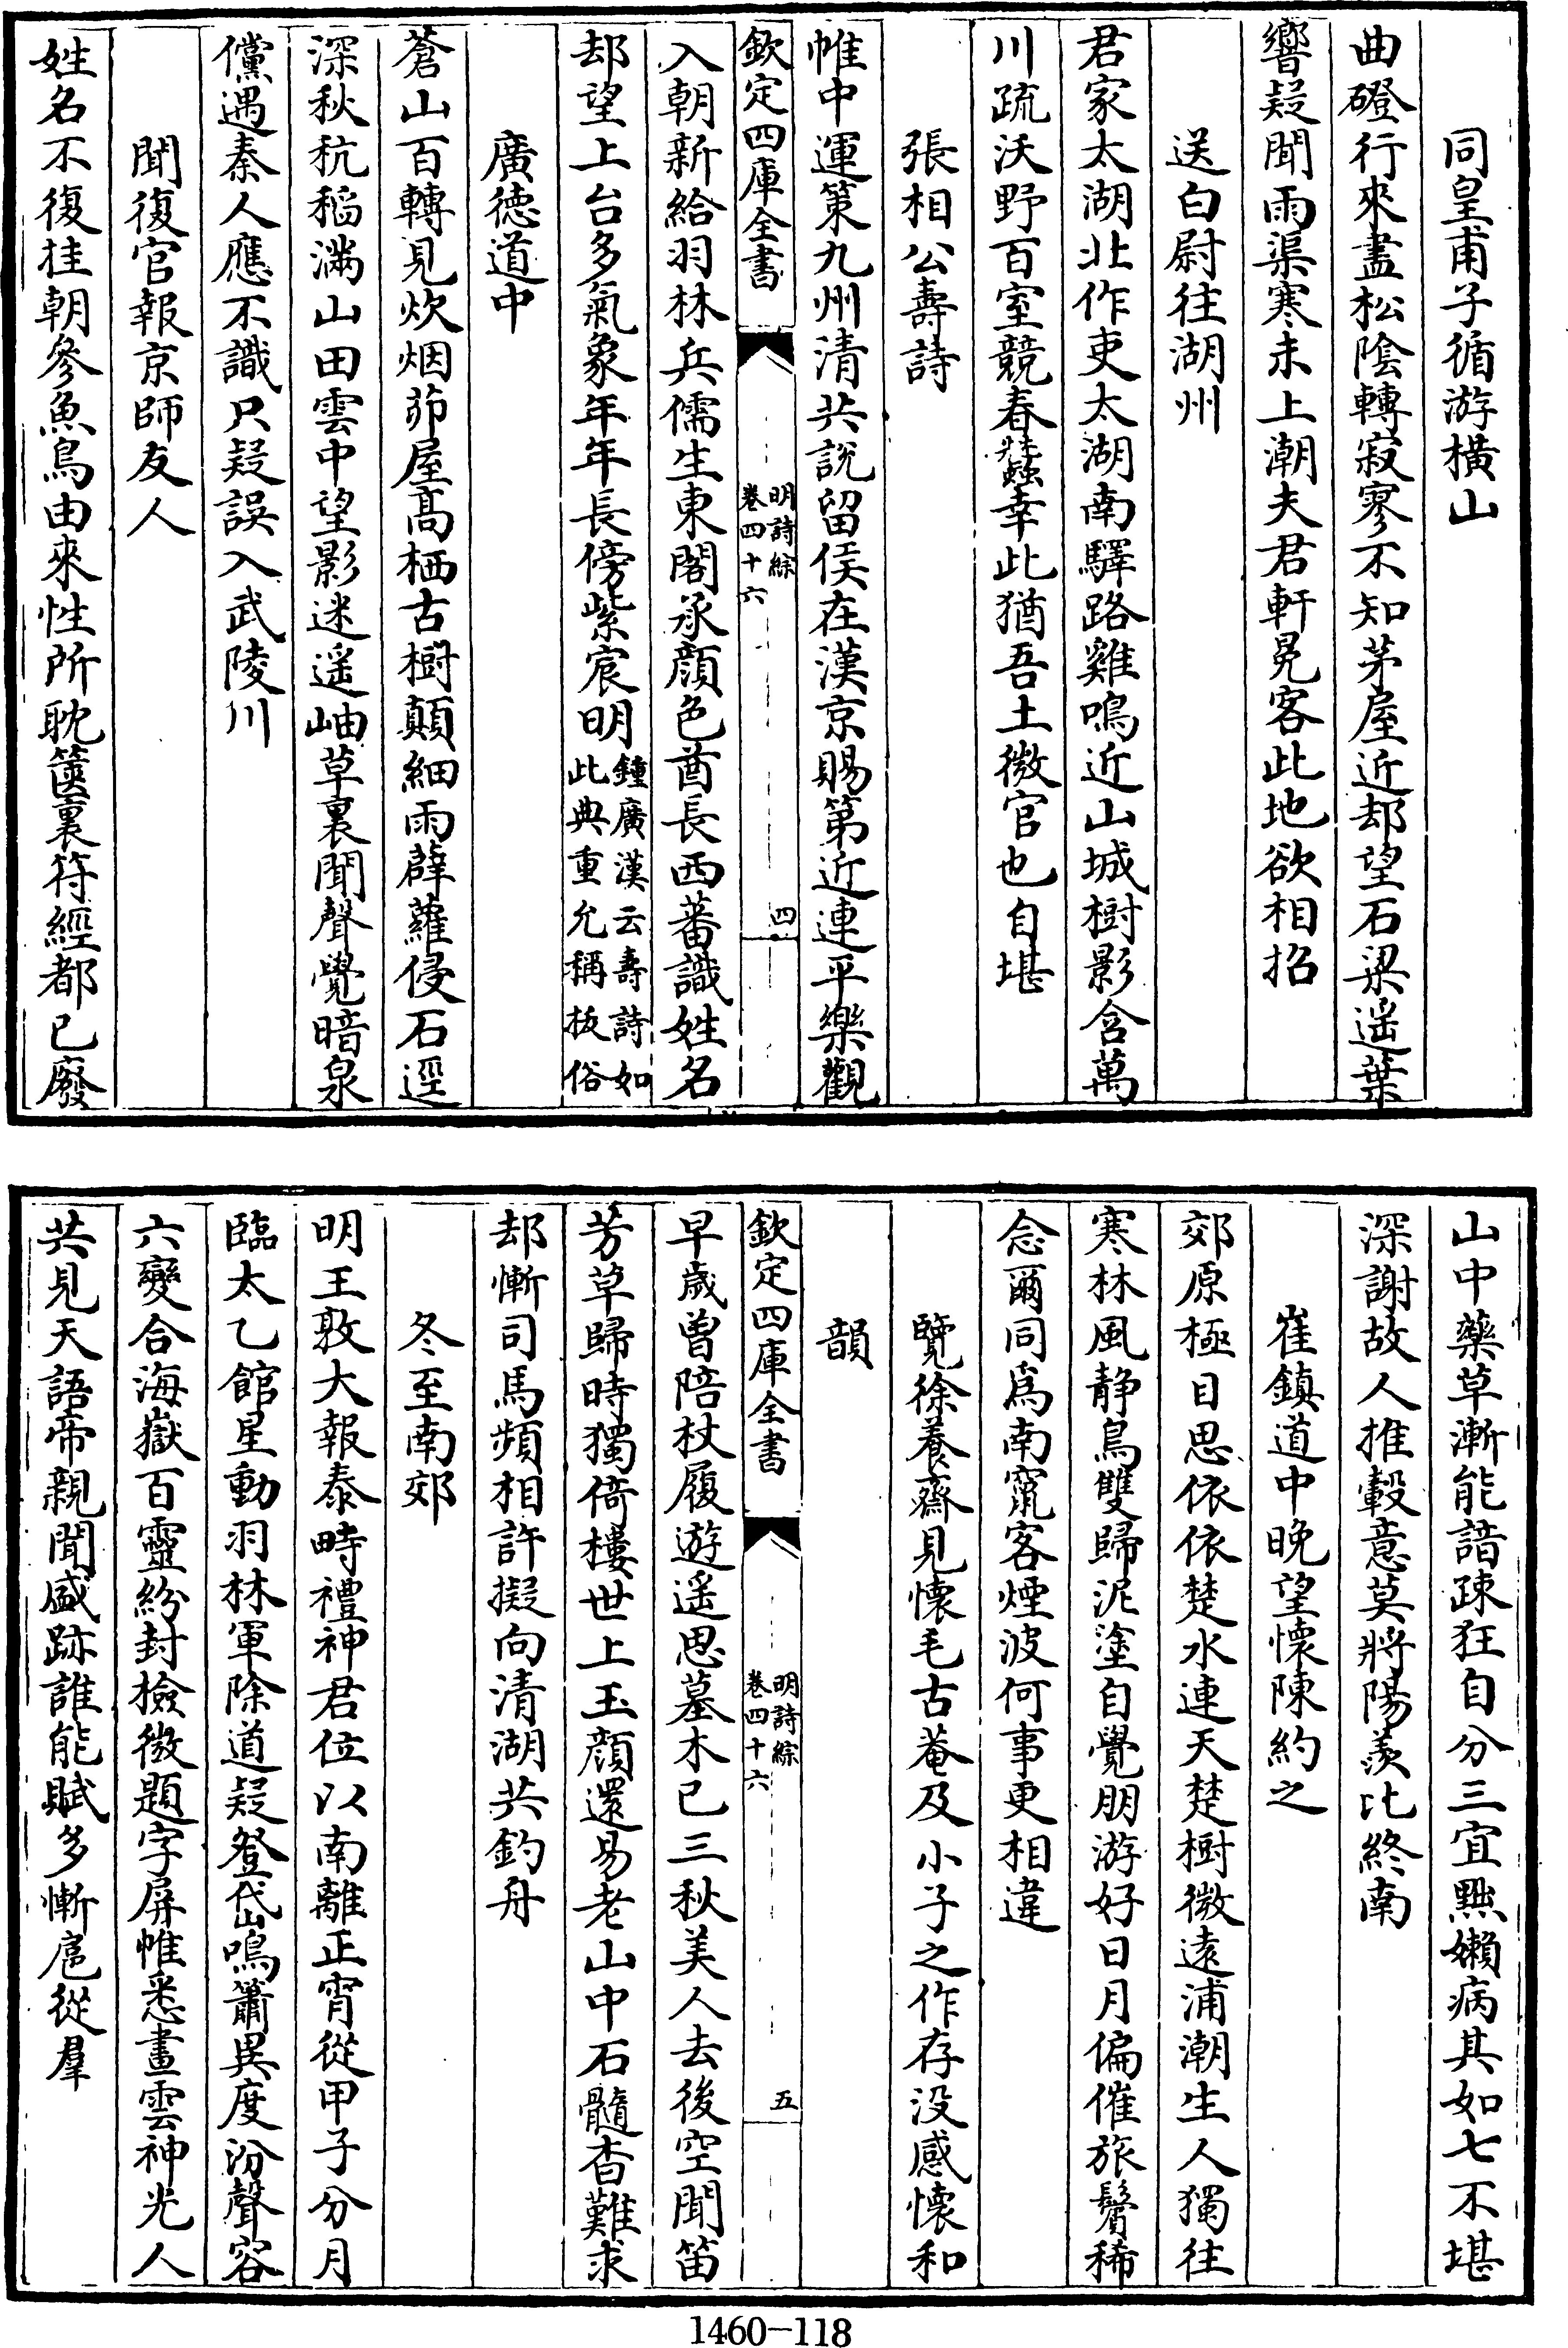 同皇甫子循游橫山
曲磴行來盡松隂轉寂寥不知茅屋近却望石梁遥葉
響疑聞雨渠寒未上潮夫君軒冕客此地欲相招
送白尉往湖州
君家太湖北作吏太湖南驛路雞鳴近山城樹影含萬
川疏沃野百室競春蠶幸此猶吾土微官也自堪
張相公壽詩
帷中運策九州清共說留侯在漢京賜第近連平樂觀
欽定四庫全書
明詩綜
卷四十六
四
入朝新給羽林兵儒生東閣承顔色酋長西蕃識姓名
却望上台多氣象年年長傍紫宸明鍾廣漢云壽詩如
此典重允稱拔俗
廣德道中
蒼山百轉見炊烟茆屋髙栖古樹顛細雨薜蘿侵石逕
深秋秔稻滿山田雲中望影迷遥岫草裏聞聲覺暗泉
儻遇秦人應不識只疑誤入武陵川
聞復官報京師友人
姓名不復挂朝參魚鳥由來性所耽篋裏符經都已廢
山中藥草漸能諳疎狂自分三宜黜嬾病其如七不堪
深謝故人推轂意莫將陽羨比終南
崔鎮道中晚望懷陳約之
郊原極目思依依楚水連天楚樹微遠浦潮生人獨往
寒林風静鳥雙歸泥塗自覺朋游好日月偏催旅鬢稀
念爾同爲南竄客煙波何事更相違
覽徐養齋見懷毛古菴及小子之作存没感懷和
韻
欽定四庫全書
明詩綜
卷四十六
五
早歲曽陪杖履遊遥思墓木已三秋美人去後空聞笛
芳草歸時獨倚樓世上玉顔還易老山中石髓杳難求
却慚司馬頻相許擬向清湖共釣舟
冬至南郊
明王敦大報泰畤禮神君位以南離正宵從甲子分月
臨太乙館星動羽林軍除道疑登岱鳴簫異度汾聲容
六變合海嶽百靈紛封檢微題字屏帷悉畫雲神光人
共見天語帝親聞盛跡誰能賦多慚扈從羣
1460-118